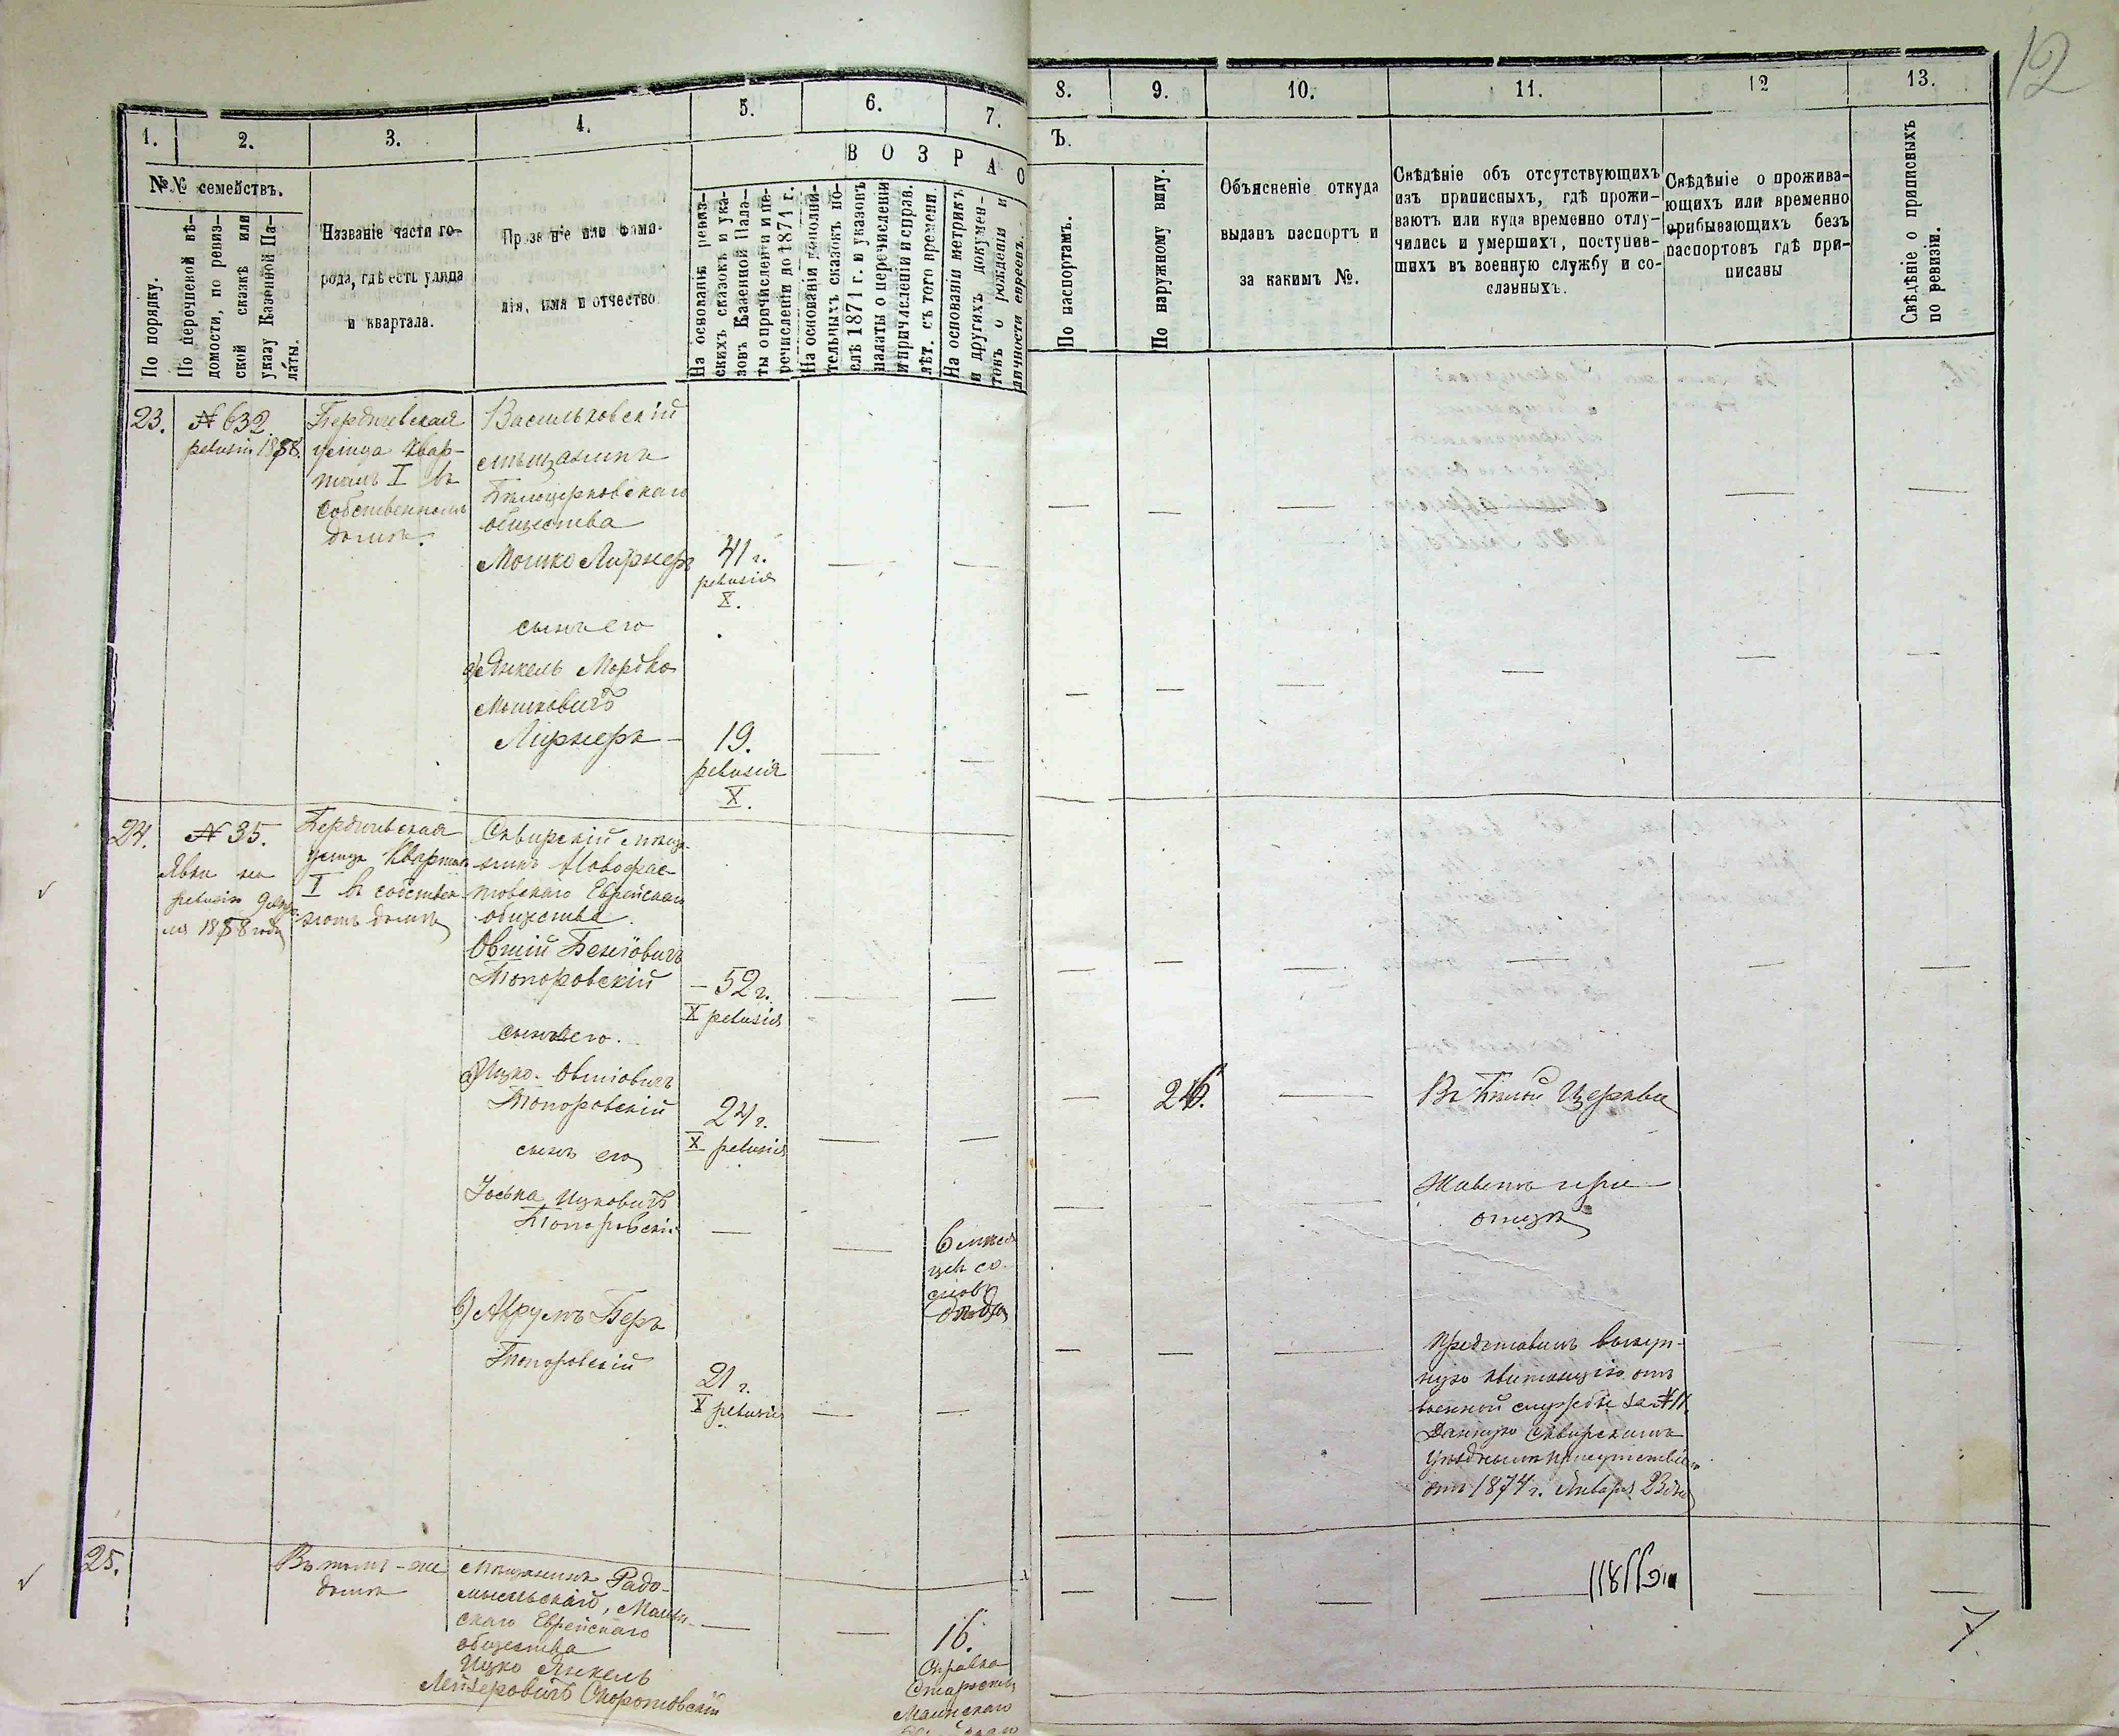 12
1.
2.
3.
4.
5.
6.
7.
8.
9.
10.
11.
12
13.
№№ семействъ.
По порядку.
По перечневой вѣ-
домости, по ревиз-
ской сказкѣ или
указу Казенной Па-
латы.
Названіе части го-
рода, гдѣ есть улица
и квартала.
Прозваніе или фами-
лія, имя и отчество
В О З Р А
С
Ъ.
На основаніи ревиз-
скихъ сказокъ и ука-
зовъ Казенной Пала-
ты о причисленіи и пе-
речисленіи до 1871 г.
На основаніи дополни-
тельныхъ сказокъ по-
слѣ 1871 г. и указовъ
палаты о перечисленіи
и причисленіи и справ.
лѣт. съ того времени.
На основаніи метрикъ
и другихъ докумен-
товъ о рожденіи и
личности евреевъ.
По паспортамъ.
По наружному виду.
Объясненіе откуда
выданъ паспортъ и
за какимъ №.
Свѣдѣніе объ отсутствующихъ
изъ приписныхъ, гдѣ прожи-
ваютъ или куда временно отлу-
чились и умершихъ, поступив-
шихъ въ военную службу и со-
сланныхъ.
Свѣдѣніе о прожива-
ющихъ или временно
прибывающихъ безъ
паспортовъ гдѣ при-
писаны
Свѣдѣніе о приписныхъ
по ревизіи.
23.
№ 632
ревизіи 1858.
Бердичевская
улица квар-
талъ I въ
собственномъ
домѣ.
Васильковскій
мѣщанинъ
Бѣлоцерковскаго
общества
Мошко Лирнеръ
41 г.
ревизія
X.
сынъ его
а) Янкель Мордко
Мошковичъ
Лирнеръ
19.
ревизія
X.
24.
№ 35.
ревизію
1858 года
Бердичевская
улица квартал
I въ собствен-
номъ домѣ
Сквирскій мѣща-
нинъ Новофас-
товскаго Еврейскаго
общества
Овшій Беніовичъ
Топоровскій
52 г.
X ревизія
сынъ его.
а) Ицко Овшіовичъ
Топоровскій
24 г.
X ревизія
26.
Въ Бѣлой Церкви
сынъ его
Іоська Ицковичъ
Топоровскій
6 мѣся-
цев со
словъ
отца
Живетъ при
отцѣ
б) Аврумъ Беръ
Топоровскій
21 г.
X ревизія
Представилъ выкуп-
ную квитанцію отъ
военной службе за № 11.
Данную Сквирскимъ
уѣзднымъ присутствіем
отъ 1874 г. Января 23 дня
25.
Въ томъ-же
домѣ
Мѣщанинъ Радо-
мысльскаго, Малин-
скаго Еврейскаго
общества
Ицко Янкель
Лейзеровичъ Скоротовскій
16.
Справка
Старосты
Малинскаго